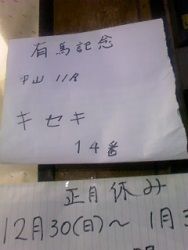 有馬記念
中山 11R
キセキ
14番
正月休み
12月30(日)〜1月3